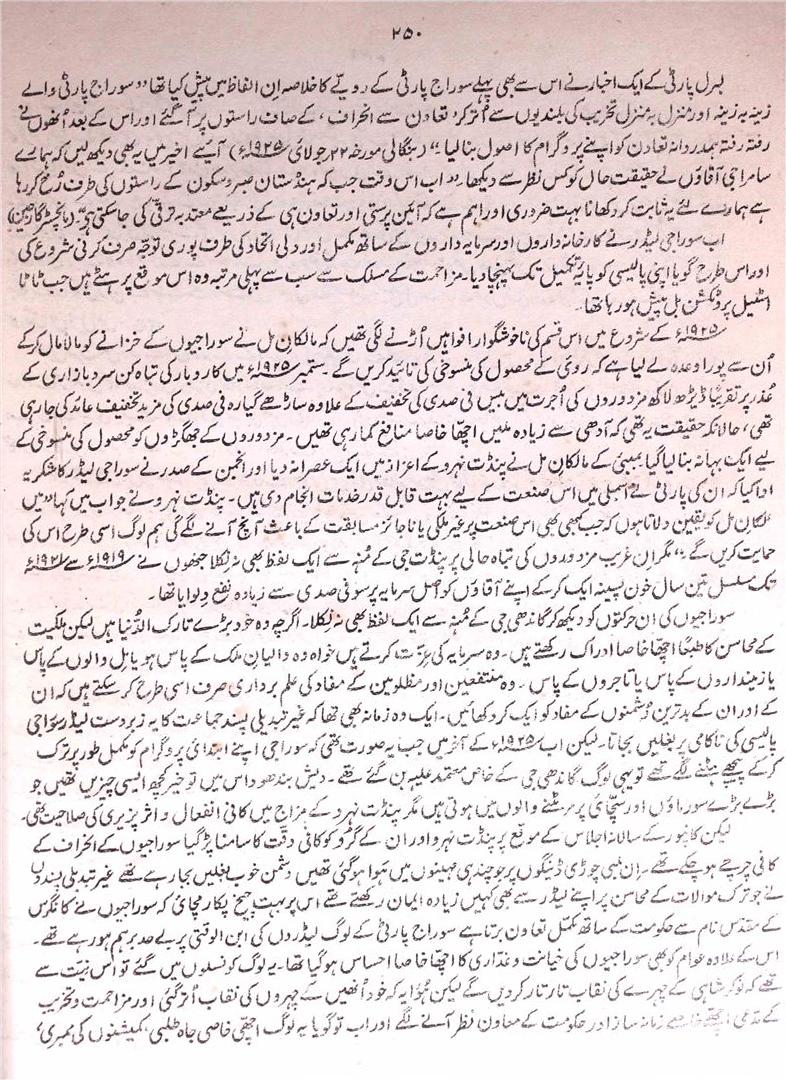 ۲۵۰
لبرل پارٹی کے ایک اخبار نے اس سے بھی پہلے سوراج پارٹی کے رویّے کا خلاصہ اِن الفاظ میں پیش کیا تھا "سوراج پارٹی والے
زینہ بہ زینہ اور منزل بہ منزل تخریب کی بلندیوں سے اُتر کر 'تعاون سے انحراف' کے صاف راستوں پر آگئے اور اس کے بعد اُنھوں نے
رفتہ رفتہ ہمدردانہ تعاون کو اپنے پروگرام کا اصول بنا لیا۔" (بنگالی مورخہ ۲۲ جولائی ۱۹۲۵ء) آئیے اخیر میں یہ بھی دیکھ لیں کہ ہمارے
سامراجی آقاؤں نے حقیقت حال کو کس نظر سے دیکھا۔ "اب اس وقت جب کہ ہندستان صبر و سکون کے راستوں کی طرف رُخ کر رہا
ہے ہمارے لئے یہ ثابت کر دکھانا بہت ضروری اور اہم ہے کہ آئین پرستی اور تعاون ہی کے ذریعے معتدبہ ترقی کی جاسکتی ہے" (مانچسٹر گارجین)
اب سوراجی لیڈر نے کارخانہ داروں اور سرمایہ داروں کے ساتھ مکمل اور دلی اتحاد کی طرف پوری توجّہ صرف کرنی شروع کی
اور اس طرح گویا اپنی پالیسی کو پایۂ تکمیل تک پہنچا دیا۔ مزاحمت کے مسلک سے سب سے پہلی مرتبہ وہ اس موقع پر ہٹے ہیں جب ٹاٹا
اسٹیل پروٹکشن بل پیش ہو رہا تھا۔
۱۹۲۵ء کے شروع میں اس قسم کی ناخوشگوار افواہیں اُڑنے لگی تھیں کہ مالکانِ مل نے سوراجیوں کے خزانے کو مالا مال کر کے
اُن سے پورا وعدہ لے لیا ہے کہ روئی کے محصول کی منسوخی کی تائید کریں گے۔ ستمبر ۱۹۲۵ء میں کاروبار کی تباہ کن سرد بازاری کے
عُذر پر تقریباً ڈیڑھ لاکھ مزدوروں کی اُجرت میں بیس فی صدی کی تخفیف کے علاوہ ساڑھے گیارہ فی صدی کی مزید تخفیف عائد کی جا رہی
تھی، حالانکہ حقیقت یہ تھی کہ آدھی سے زیادہ ملیں اچھا خاصا منافع کما رہی تھیں۔ مزدوروں کے جھگڑوں کو محصول کی منسوخی کے
لیے ایک بہانہ بنا لیا گیا بمبئی کے مالکان مل نے پنڈت نہرو کے اعزاز میں ایک عصرانہ دیا اور انجمن کے صدر نے سوراجی لیڈر کا شکریہ
ادا کیا کہ ان کی پارٹی نے اسمبلی میں اس صنعت کے لیے بہت قابل قدر خدمات انجام دی ہیں۔ پنڈت نہرو نے جواب میں کہا "میں
مالکان مل کو یقین دلاتا ہوں کہ جب کبھی بھی اس صنعت پر غیر ملکی یا ناجائز مسابقت کے باعث آنچ آنے لگے گی ہم لوگ اسی طرح اس کی
حمایت کریں گے۔" مگر ان غریب مزدوروں کی تباہ حالی پر پنڈت جی کے مُنہ سے ایک لفظ بھی نہ نکلا جنھوں نے ۱۹۱۹ء سے ۱۹۲۱ء
تک مسلسل تین سال خون پسینہ ایک کر کے اپنے آقاؤں کو اصل سرمایہ پر سو فی صدی سے زیادہ نفع دلوایا تھا۔
سوراجیوں کی ان حرکتوں کو دیکھ کر گاندھی جی کے مُنہ سے ایک لفظ بھی نہ نکلا۔ اگرچہ وہ خود بڑے تارک الدُّنیا ہیں لیکن ملکیت
کے محاسن کا طبعاً اچھا خاصا ادراک رکھتے ہیں۔ وہ سرمایہ کی عزت کرتے ہیں خواہ وہ والیانِ ملک کے پاس ہو یا مل والوں کے پاس
یا زمینداروں کے پاس یا تاجروں کے پاس۔ وہ منتفعین اور مظلومین کے مفاد کی علم برداری صرف اسی طرح کر سکتے ہیں کہ ان
کے اور ان کے بدترین دُشمنوں کے مفاد کو ایک کر دکھائیں۔ ایک وہ زمانہ بھی تھا کہ غیر تبدیلی پسند جماعت کا یہ زبردست لیڈر سوراجی
پالیسی کی ناکامی پر بغلیں بجاتا۔ لیکن اب ۱۹۲۵ء کے آخر میں جب یہ صورت تھی کہ سوراجی اپنے ابتدائی پروگرام کو مکمل طور پر ترک
کر کے پیچھے ہٹنے لگے تھے تو یہی لوگ گاندھی جی کے خاص معتمد علیہ بن گئے تھے۔ دیش بندھو داس میں تو خیر کچھ ایسی چیزیں تھیں جو
بڑے بڑے سورماؤں اور سچائی پر مرمٹنے والوں میں ہوتی ہیں مگر پنڈت نہرو کے مزاج میں کافی انفعال و اثر پزیری کی صلاحیت تھی۔
لیکن کانپور کے سالانہ اجلاس کے موقع پر پنڈت نہرو اور ان کے گرُو کو کافی دقّت کا سامنا پڑ گیا سوراجیوں کے انحراف کے
کافی چرچے ہو چکے تھے۔ اِن لمبی چوڑی ڈینگوں پر جو چند ہی مہینوں میں ہَوا ہو گئی تھیں دشمن خوب بغلیں بجا رہے تھے غیر تبدیلی پسندوں
نے جو ترک موالات کے محاسن پر اپنے لیڈر سے بھی کہیں زیادہ ایمان رکھتے تھے اس پر بہت چیخ پکار مچائی کہ سوراجیوں نے کانگرس
کے مقدّس نام سے حکومت کے ساتھ مکمل تعاون برتا ہے سوراج پارٹی کے لوگ لیڈروں کی ابن الوقتی پر بے حد برہم ہو رہے تھے۔
اس کے علاوہ عوام کو بھی سوراجیوں کی خیانت و غدّاری کا اچھا خاصا احساس ہو گیا تھا۔ یہ لوگ کونسلوں میں گئے تو اس نیت سے
تھے کہ نوکر شاہی کے چہرے کی نقاب تار تار کر دیں گے لیکن ہُوا یہ کہ خود اُنھیں کے چہروں کی نقاب اُتر گئی اور مزاحمت و تخریب
کے مدّعی اچھے خاصے زمانہ ساز اور حکومت کے معاون نظر آنے لگے اور اب تو گویا یہ لوگ اچھی خاصی جاہ طلبی، کمیشنوں کی ممبری،